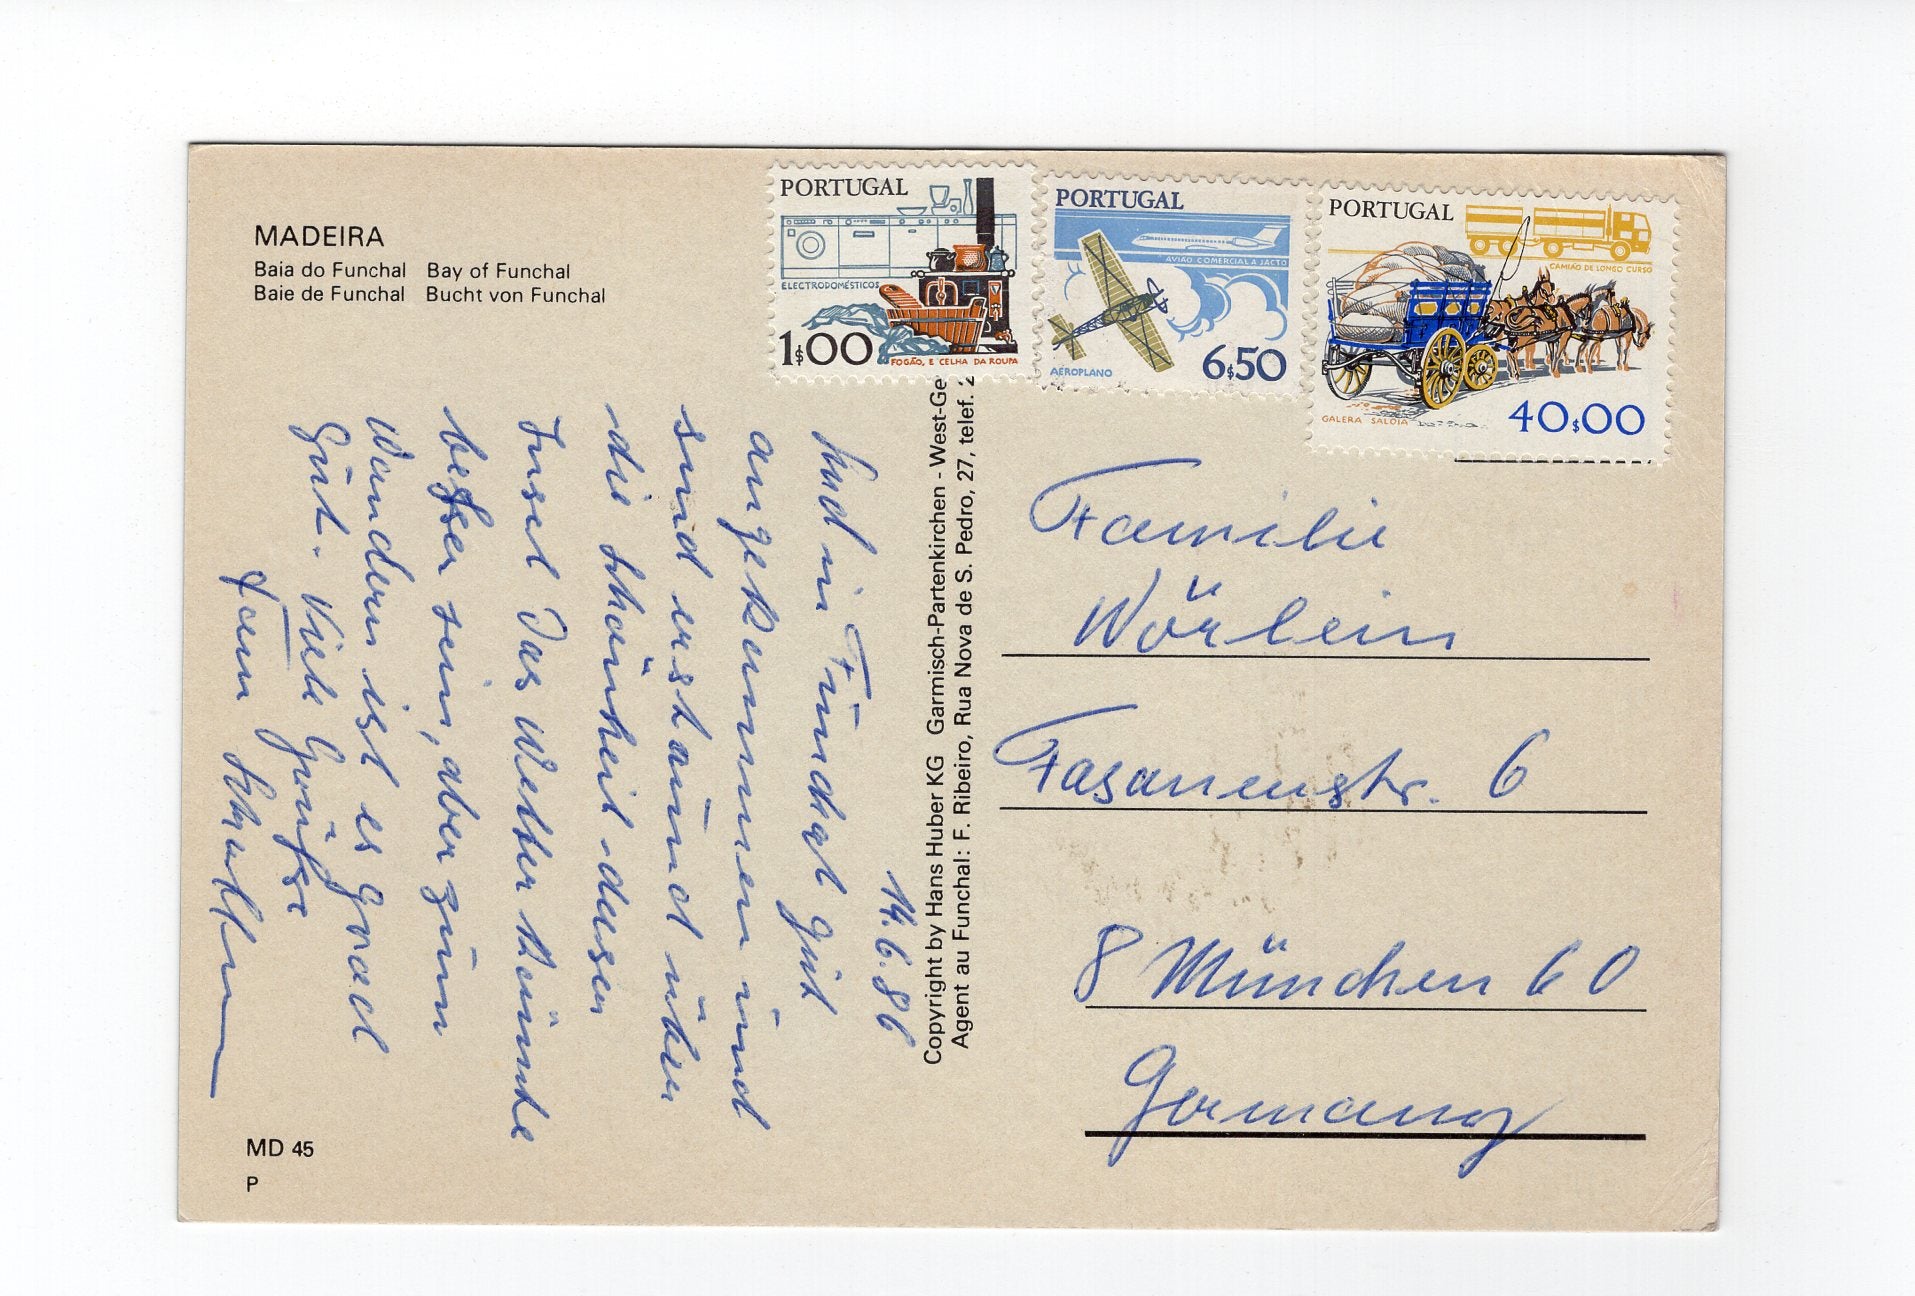 MADEIRA
Baia do Funchal Bay of Funchal
Baie de Funchal Bucht von Funchal
PORTUGAL
ELECTRODOMÉSTICOS
1$00
FOGÃO, E CELHA DA ROUPA
PORTUGAL
AVIÃO COMERCIAL A JACTO
AEROPLANO
6$50
PORTUGAL
CAMIÃO DE LONGO CURSO
GALERA SALOIA
40$00
14.6.86
Sind in Funchal gut
angekommen und
sind erstaunt über
die Schönheit dieser
Insel Das Wetter könnte
beßer sein, aber zum
Wandern ist es grad
Gut. Viele Grüße
Fam
Copyright by Hans Huber KG Garmisch-Partenkirchen - West-Ge
Agent au Funchal: F. Ribeiro, Rua Nova de S. Pedro, 27, telef. 2
Familie
Wörlein
Fasanenstr. 6
8 München 60
Germany
MD 45
P